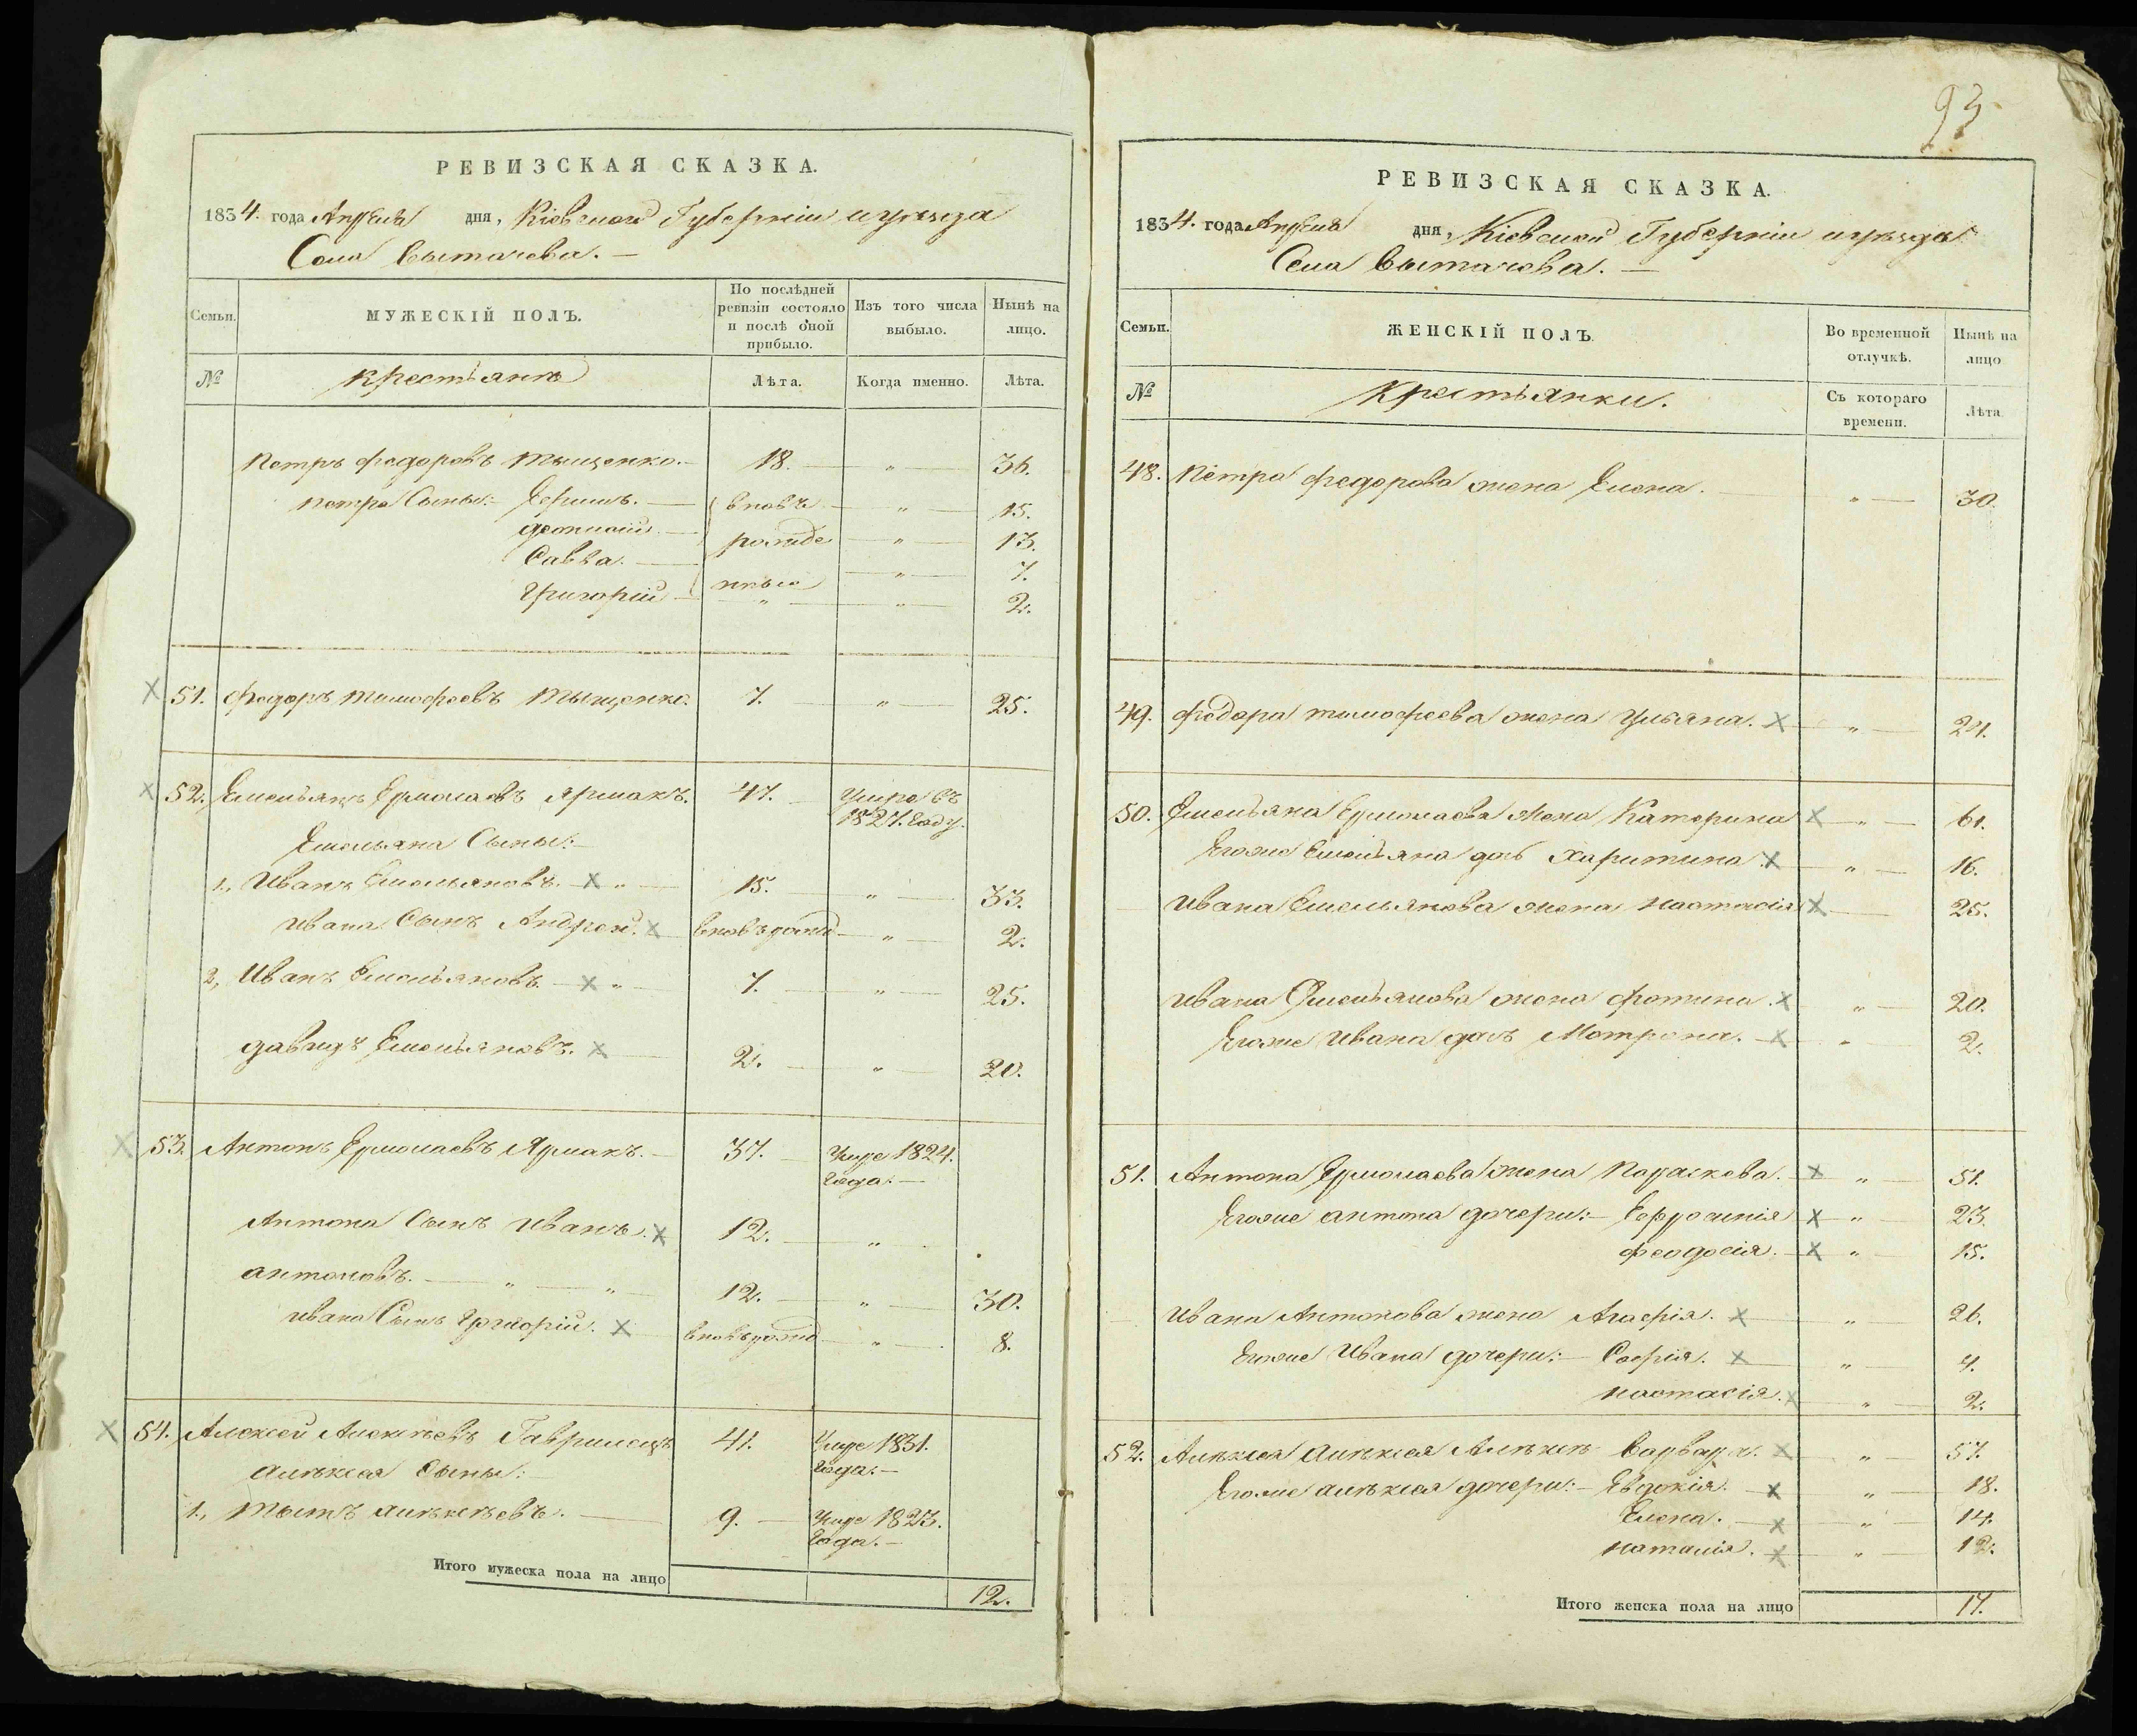 РЕВИЗСКАЯ СКАЗКА.
1834. года Апреля дня, Кіевской Губерніи и уѣзда
Села Вытачева. —
Семьи. МУЖЕСКІЙ ПОЛЪ. По послѣдней ревизіи состояло и послѣ оной прибыло. Изъ того числа выбыло. Нынѣ на лицо.
№ Крестьяне Лѣта. Когда именно. Лѣта.
Петръ федоровъ Тыщенко. — 18. — „ — 36.
петра Сыны: — Ефимъ. — вновь — „ — 15.
— рожде — „ — 13.
Савва. — „ — 7.
Григорій — нные „ — „ — 2.
51. федоръ тимофеевъ Тыщенко. 7. — „ — 25.
52. Емельянъ Ермолаевъ Ярмакъ. 47. — Умре въ
1827. Году.
Емельяна Сыны: —
1., Иванъ Емельяновъ. — „ — 15. — „ — 33.
Ивана Сынъ Андрей. вновърожд — „ — 2.
2, Иванъ Емельяновъ. — „ — 7. — „ — 25.
давидъ Емельяновъ. — 2. — „ — 20.
53. Антонъ Ермолаевъ Ярмакъ. — 37. — Умре 1824.
Года. —
Антона Сынъ Иванъ. 12. — „ —
антоновъ. — „ — „ — 12. — „ — 30.
Ивана Сынъ Григорій. вновърожд — „ — 8.
54. Алексей Алексѣевъ Гаврилецъ 41. Умре 1831.
Года. —
алѣксея Сыны: —
1., Титъ алѣксѣевъ. — 9. — Умре 1823.
Года. —
Итого мужеска пола на лицо 12.
93
РЕВИЗСКАЯ СКАЗКА.
1834. года Апреля дня, Кіевской Губерніи и уѣзда
Села Вытачева. —
Семьи. ЖЕНСКІЙ ПОЛЪ. Во временной отлучкѣ. Нынѣ на лицо
№ Крестьянки. Съ котораго времени. Лѣта.
48. Петра федорова жена Елена. — „ — 30.
49. федора тимофеева жена Ульяна. — „ — 24.
50. Емельяна Ермолаева жена Катерина — „ — 61.
Егоже Емельяна доч Харитина. „ — 16.
Ивана Емельянова жена Настасія — 25.
Ивана Емельянова жена фотина. „ — 20.
Егоже Ивана доч Мотрона. — „ — 2.
51. Антона Ермолаева жена Параскева. — „ — 51.
Егоже антона дочери: — Ефросинія „ — 23.
феодосія. — „ — 15.
Ивана Антонова жена Агафія. — „ — 26.
Егоже Ивана дочери: — Софія. — „ — 4.
настасія. „ — 2.
52. Алѣксея алѣксея Варвара. — „ — 57.
Егоже алѣксея дочери: — Евдокія. — „ — 18.
Елена. — „ — 14.
наталія. — „ — 12.
Итого женска пола на лицо 17.